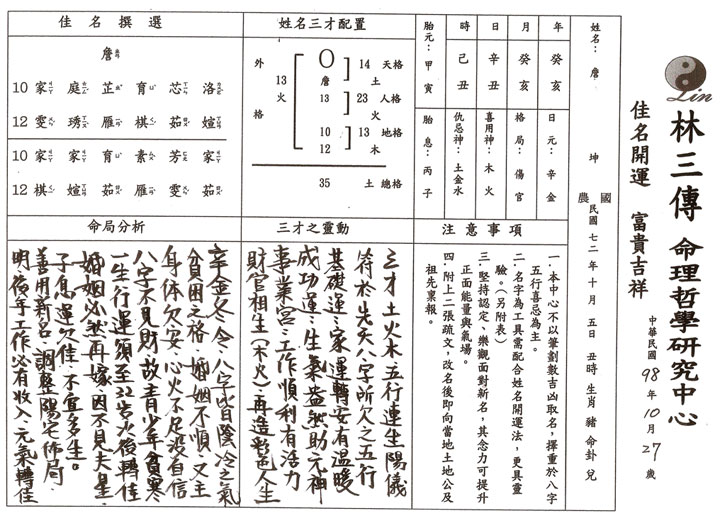 Lin
林三傳 命理哲學研究中心
佳名開運 富貴吉祥
中華民國 98 年 10 月 27 歲
姓名：詹
坤
國
農
民國 七二 年 十 月 五 日 丑 時 生肖 豬 命卦 兌
年 癸 亥
月 癸 亥
日 辛 丑
時 己 丑
胎元：甲寅
日元：辛金
格局：傷官
喜用神：木火
仇忌神：土金水
胎息：丙子
注意事項
一．本中心不以筆劃數吉凶取名，擇重於八字
五行喜忌為主。
二．名字為工具需配合姓名開運法，更具靈
驗。（另附表）
三．堅持認定、樂觀面對新名，其念力可提升
正面能量與氣場。
四．附上二張疏文，改名後即向當地土地公及
祖先稟報。
姓名三才配置
外格
13
火
詹
13
10
12
14 天格
土
23 人格
火
13 地格
木
35 土 總格
三才之靈動
三才土火木五行連生陽儀
符於先天八字所欠之五行
基礎運、家運轉安有溫暖
成功運、生氣盎然助元神
事業宮、工作順利有活力
財官相生(木火)、再造彩色人生
佳名撰選
詹
10 家 庭 芷 育 芯 洛
12 雯 琇 雁 棋 茹 媗
10 家 家 育 素 芳 家
12 棋 媗 茹 雁 雯 茹
命局分析
辛金冬令、八字皆陰冷之氣
貧困之格、婚姻不順、又主
身体欠安、心火不足沒自信
八字不見財故青少年貧寒
一生行運須至32岁火後轉佳
婚姻必然再嫁、因不見夫星、
子息運欠佳、不宜多生。
善用新名、調整陽宅佈局、
明後年工作必有收入、元氣轉佳